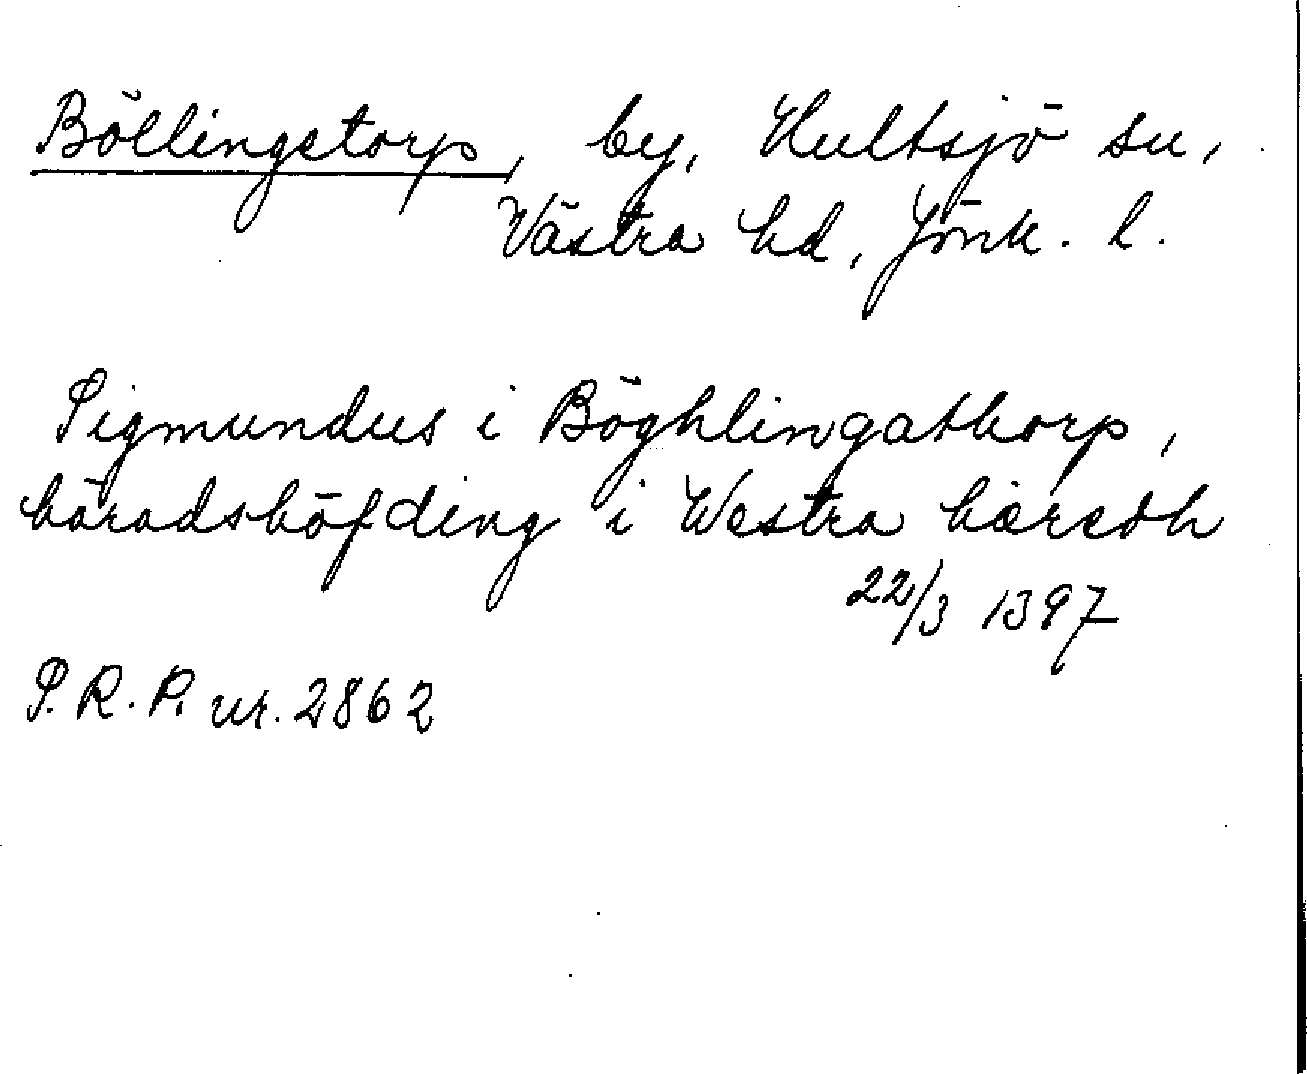 Böllingstorp, by, Hultsjö sn,
Västra hd, Jönk. l.
Sigmundus i Böghlingathorp,
häradshöfding i Westra hæredh
22/3 1397
S.R.P. nr. 2862